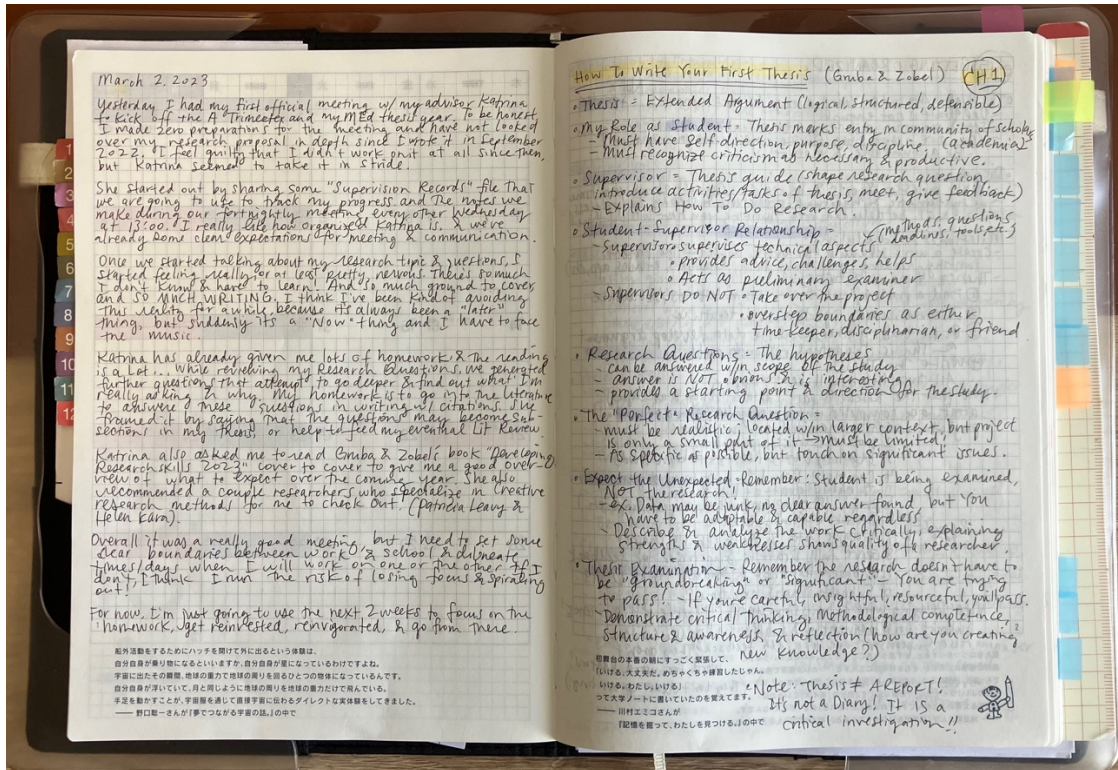 March 2, 2023
Yesterday I had my first official meeting w/ my advisor Katrina
to kick off the A Trimester and my MEd thesis year. To be honest,
I made zero preparations for the meeting and have not looked
over my research proposal in depth since I wrote it in September
2022. I feel guilty that I didn't work on it at all since then,
but Katrina seemed to take it in stride.
She started out by sharing some "Supervision Records" file that
we are going to use to track my progress and the notes we
make during our fortnightly meeting every other Wednesday
at 13:00. I really like how organized Katrina is, & we've
already some clear expectations for meeting & communication.
Once we started talking about my research topic & questions, I
started feeling really, or at least pretty, nervous. There's so much
I don't know & have to learn. And so much ground to cover
and SO MUCH WRITING. I think I've been kind of avoiding
this reality for a while, because it's always been a "later"
thing, but suddenly its a "Now" thing and I have to face
the music.
Katrina has already given me lots of homework & the reading
is a lot... While reviewing my Research Questions, we generated
further questions that attempt to go deeper & find out what I'm
really asking & why. My homework is to go into the literature
to answere these questions in writing w/ citations. She
framed it by saying that the questions may become sub-
sections in my thesis, or help to feed my eventual Lit Review
Katrina also asked me to read Gruba & Zobel's book "Developing
Research skills 2023" cover to cover to give me a good over-
view of what to expect over the coming year. She also
recommended a couple researchers who specialize in Creative
research methods for me to check out. (Patricia Leavy &
Helen Kara).
Overall it was a really good meeting, but I need to set some
clear boundaries between work & school & delineate
times/days when I will work on one or the other. If I
don't, I think I run the risk of losing focus & spiraling
out!
For now, I'm just going to use the next 2 weeks to focus on the
homework, get reinvested, reinvigorated, & go from there.
船外活動をするためにハッチを開けて外に出るという体験は、
自分自身が乗り物になるといいますか、自分自身が星になっているわけですよね。
宇宙に出たその瞬間、地球の重力で地球の周りを回るひとつの物体になっているんです。
自分自身が浮いていて、月と同じように地球の周りを地球の重力だけで飛んでいる。
手足を動かすことが、宇宙服を通じて直接宇宙に伝わるダイレクトな実体験をしてきました。
―― 野口聡一さんが『夢でつながる宇宙の話。』の中で
How To Write Your First Thesis (Gruba & Zobel) CH.1
• Thesis = Extended Argument (logical, structured, defensible)
• My Role as student = Thesis marks entry in community of scholars
(academia)
- Must have self-direction, purpose, discipline,
- Must recognize criticism as necessary & productive.
• Supervisor = Thesis guide (shape research question,
introduce activities/tasks of thesis, meet, give feedback)
- Explains How To Do Research.
• Student-Supervisor Relationship =
(methods, questions,
deadlines, tools, etc.)
- Supervisor supervises technical aspects
• provides advice, challenges, helps
• Acts as preliminary examiner
- Supervisors DO NOT • Take over the project
• overstep boundaries as either
time-keeper, disciplinarian, or friend
• Research Questions = The hypotheses
- can be answered w/in scope of the study
- answer is NOT obvious & is interesting
- provides a starting point & direction for the study.
• The "Perfect" Research Question =
- must be realistic; located w/in larger context, but project
is only a small part of it → must be limited!
- As specific as possible, but touch on significant issues.
• Expect the Unexpected - Remember: Student is being examined,
NOT the research!
- ex. Data may be junk, no clear answer found, but you
have to be adaptable & capable regardless
- Describe & analyze the work critically; explaining
strengths & weaknesses shows quality of a researcher.
• Thesis Examination - Remember the research doesn't have to
be "groundbreaking" or "significant" - You are trying
to pass! - If you're careful, insightful, resourceful, you'll pass.
- Demonstrate critical thinking, methodological competence,
structure & awareness, & reflection (how are you creating
new knowledge?)
初舞台の本番の朝にすっごく緊張して、
「いける。大丈夫だ。めちゃくちゃ練習したじゃん。
いける。わたし、いける」
って大学ノートに書いていたのを覚えてます。
―― 川村エミコさんが
『記憶を掘って、わたしを見つける。』の中で
• Note: Thesis ≠ A REPORT!
It's not a Diary! It is a
critical investigation!!
1
2
3
4
5
6
7
8
9
10
11
12